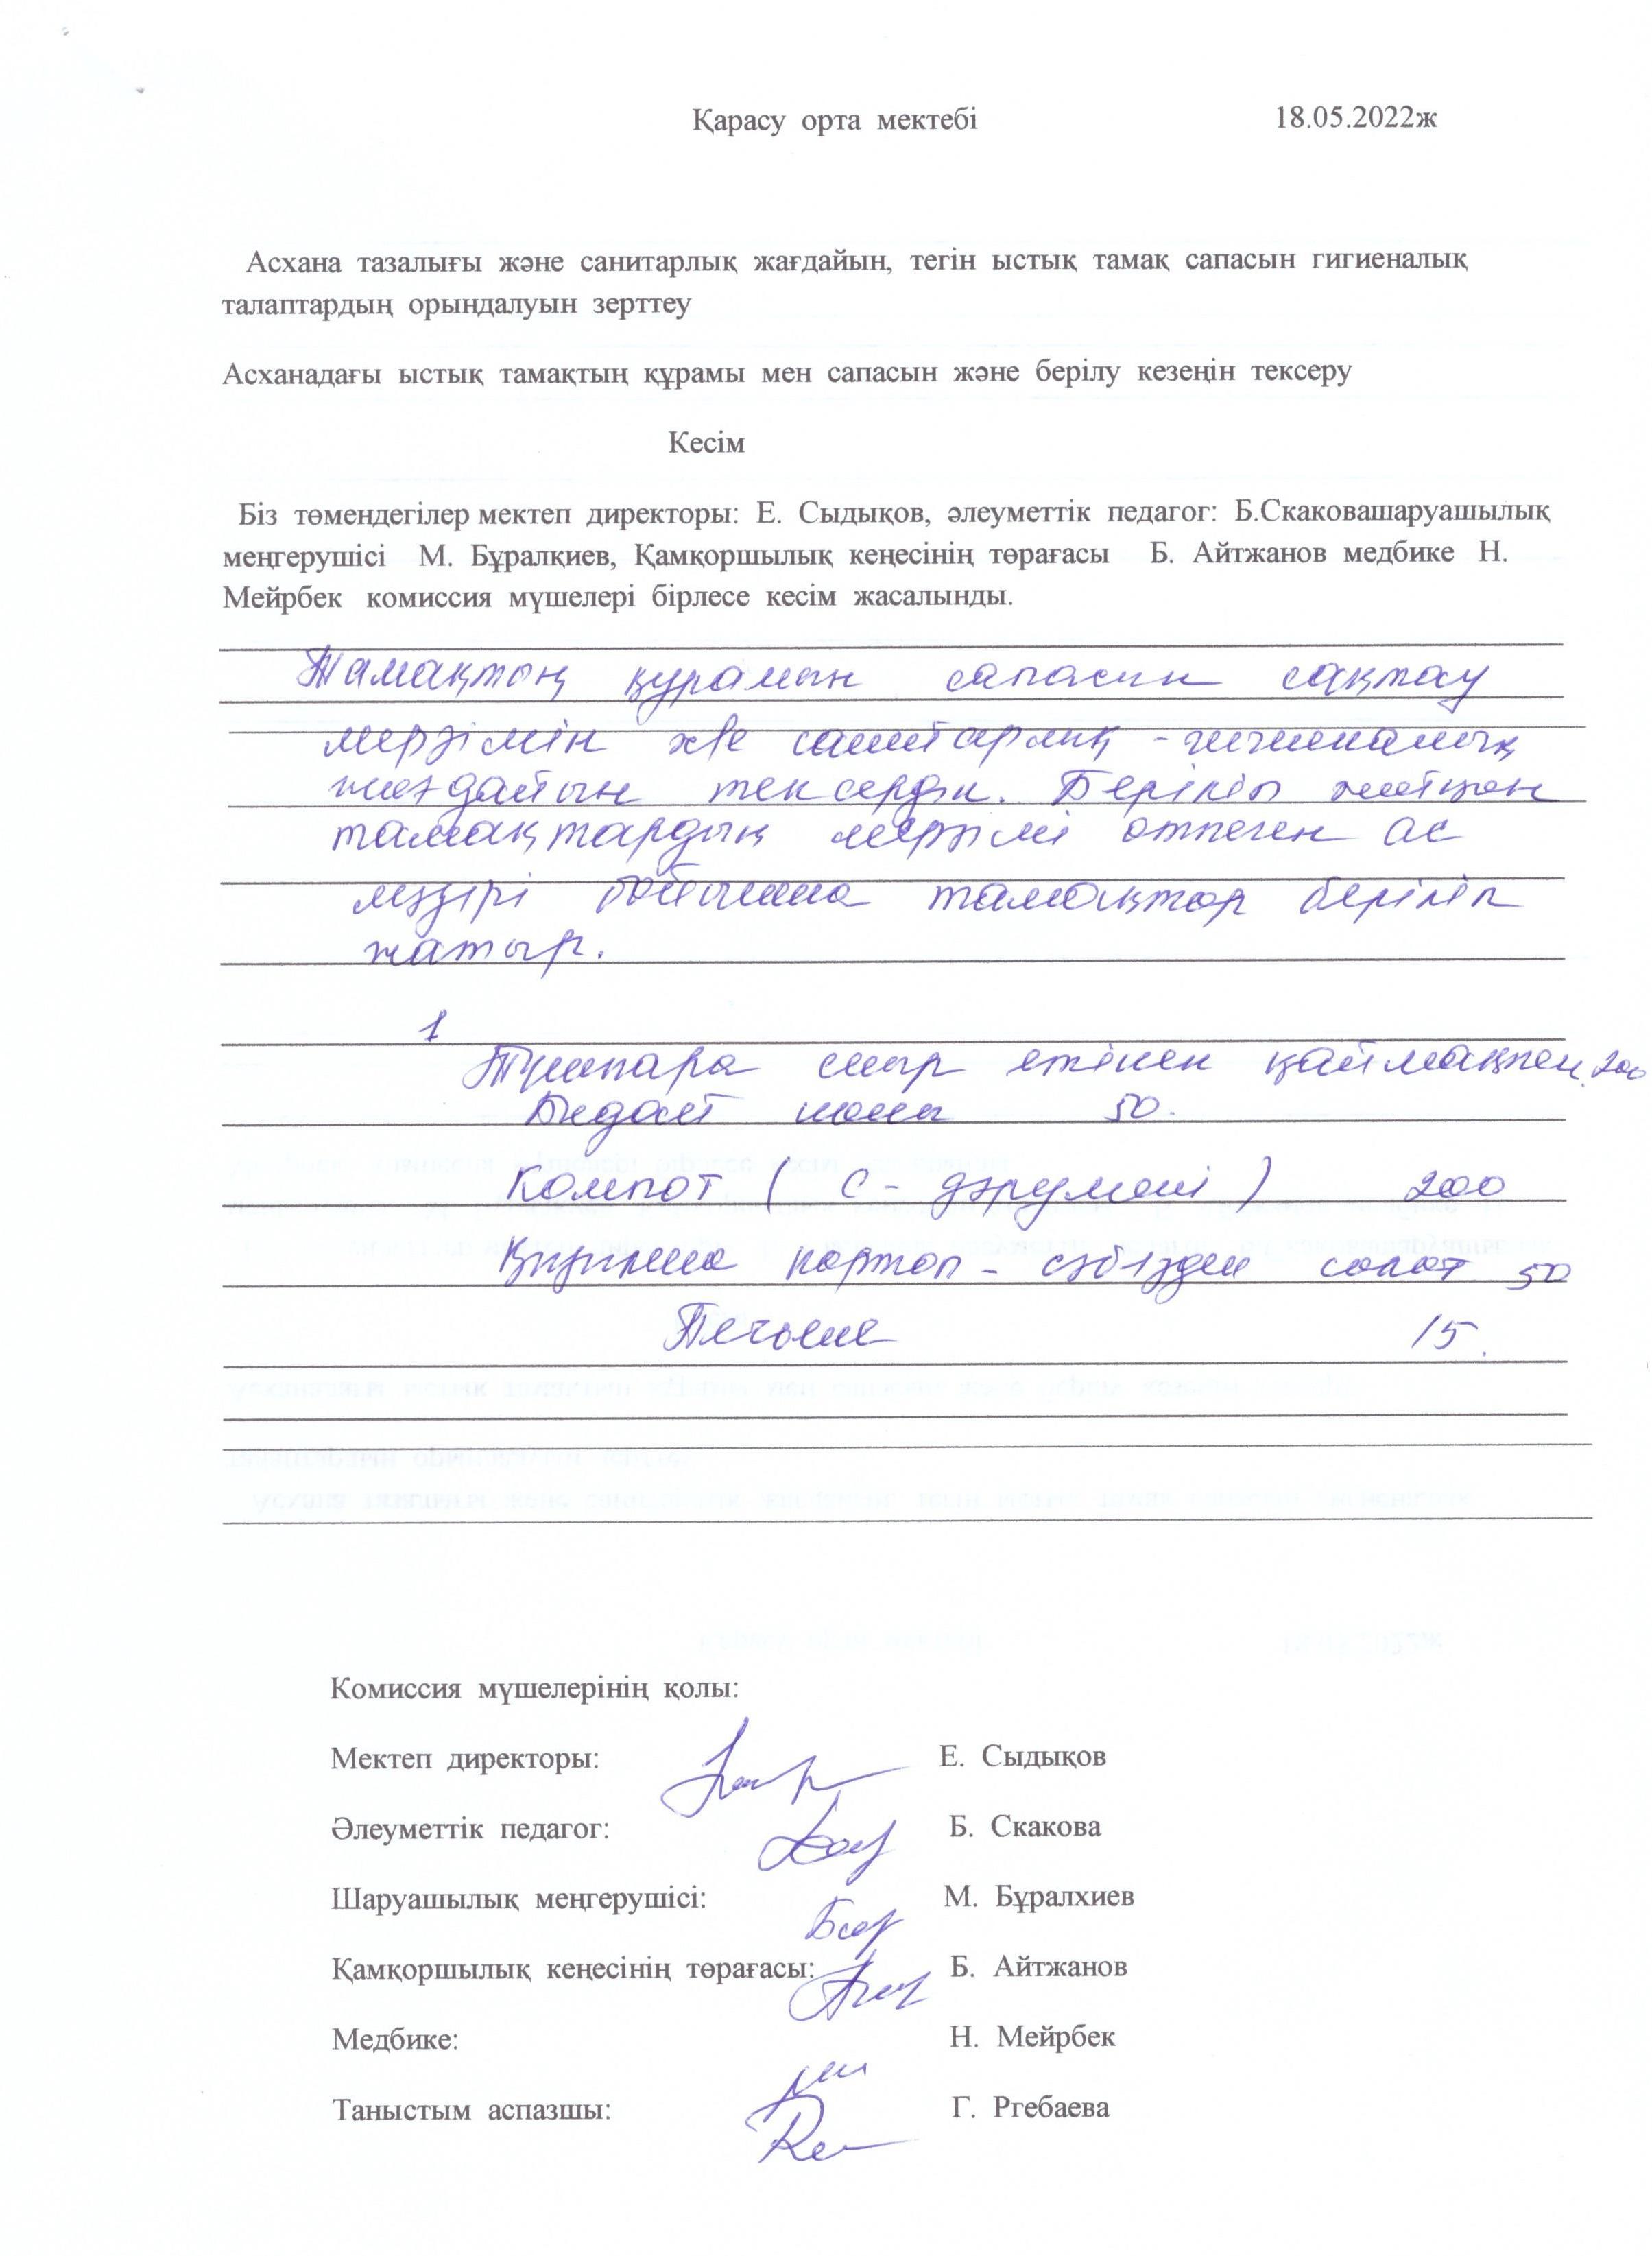 Қарасу орта мектебі 18.05.2022ж
Асхана тазалығы және санитарлық жағдайын, тегін ыстық тамақ сапасын гигиеналық
талаптардың орындалуын зерттеу
Асханадағы ыстық тамақтың құрамы мен сапасын және берілу кезеңін тексеру
Кесім
Біз төмендегілер мектеп директоры: Е. Сыдықов, әлеуметтік педагог: Б.Скаковашаруашылық
меңгерушісі М. Бұралқиев, Қамқоршылық кеңесінің төрағасы Б. Айтжанов медбике Н.
Мейрбек комиссия мүшелері бірлесе кесім жасалынды.
Тамақтың құрамын сапасын сақтау
мерзімін және санитарлық - гигиеналық
жағдайын тексердік. Беріліп жатқан
тамақтардың мерзімі өтпеген ас
мәзірі бойынша тамақтар беріліп
жатыр.
1
Тұшпара сиыр етінен қаймақпен 200
Бидай наны 50.
Компот ( С - дәрумені ) 200
Қызылша картоп - сәбізден салат 50
Печенье 15.
Комиссия мүшелерінің қолы:
Мектеп директоры: Е. Сыдықов
Әлеуметтік педагог: Б. Скакова
Шаруашылық меңгерушісі: М. Бұралхиев
Қамқоршылық кеңесінің төрағасы: Б. Айтжанов
Медбике: Н. Мейрбек
Таныстым аспазшы: Г. Ргебаева